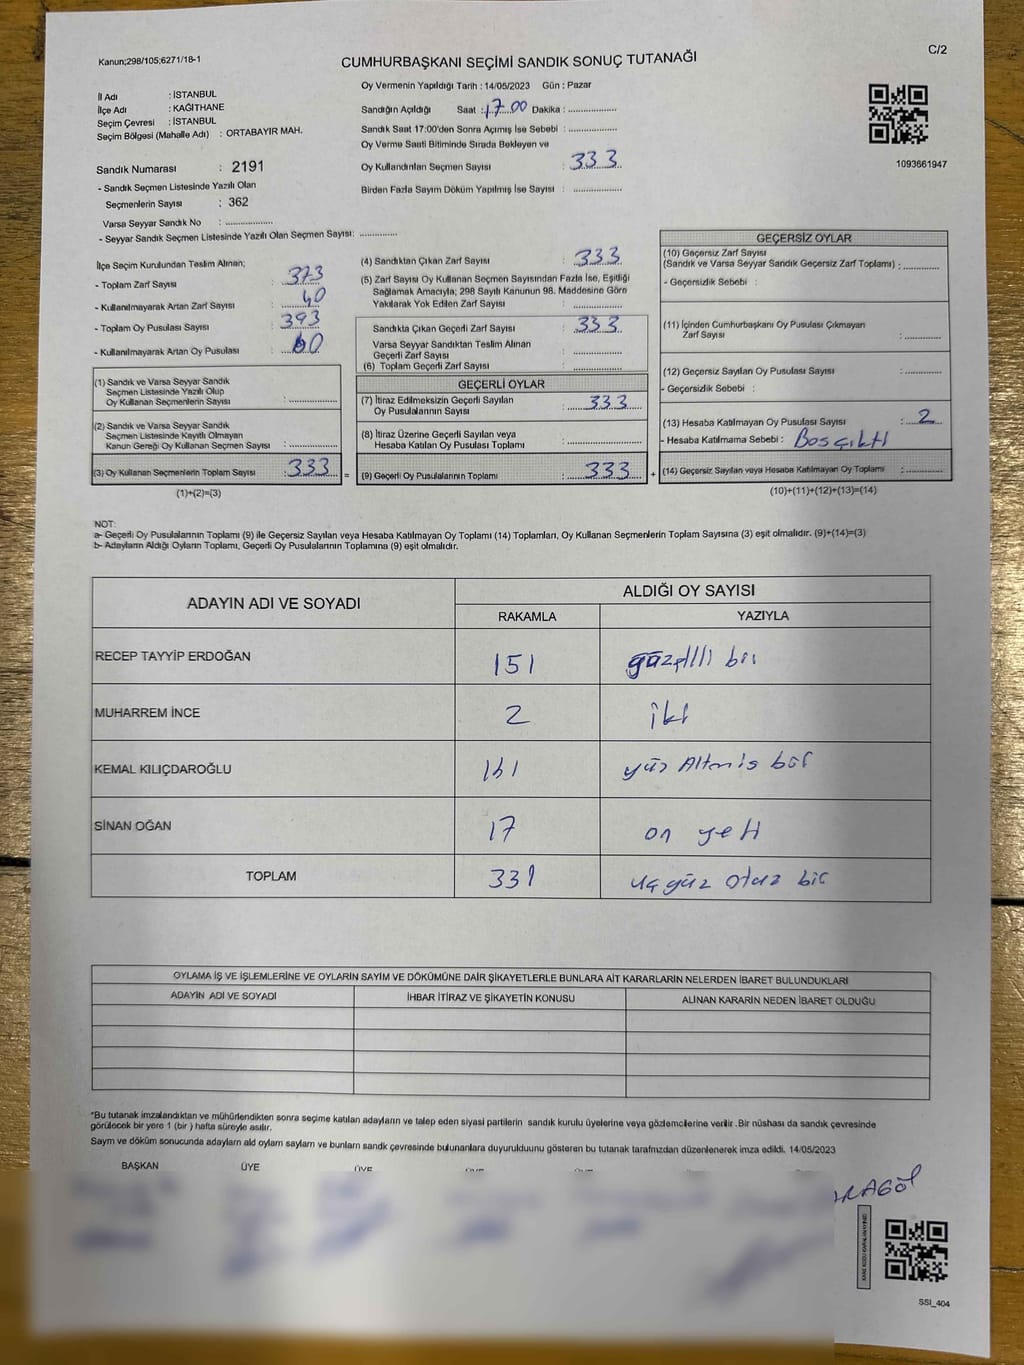 Kanun;298/105;6271/18-1
C/2
CUMHURBAŞKANI SEÇİMİ SANDIK SONUÇ TUTANAĞI
İl Adı : İSTANBUL
İlçe Adı : KAĞITHANE
Seçim Çevresi : İSTANBUL
Seçim Bölgesi (Mahalle Adı) : ORTABAYIR MAH.
Sandık Numarası : 2191
- Sandık Seçmen Listesinde Yazılı Olan
Seçmenlerin Sayısı : 362
Varsa Seyyar Sandık No : ..............
- Seyyar Sandık Seçmen Listesinde Yazılı Olan Seçmen Sayısı: ............
Oy Vermenin Yapıldığı Tarih : 14/05/2023 Gün : Pazar
Sandığın Açıldığı Saat : 17.00 Dakika : ..............
Sandık Saat 17:00'den Sonra Açımış İse Sebebi : ..............
Oy Verme Saati Bitiminde Sırada Bekleyen ve
Oy Kullandırılan Seçmen Sayısı : 333
Birden Fazla Sayım Döküm Yapılmış İse Sayısı : ..............
1093661947
İlçe Seçim Kurulundan Teslim Alınan;
- Toplam Zarf Sayısı : 373
- Kullanılmayarak Artan Zarf Sayısı : 40
- Toplam Oy Pusulası Sayısı : 393
- Kullanılmayarak Artan Oy Pusulası : 60
(1) Sandık ve Varsa Seyyar Sandık
Seçmen Listesinde Yazılı Olup
Oy Kullanan Seçmenlerin Sayısı : ..............
(2) Sandık ve Varsa Seyyar Sandık
Seçmen Listesinde Kayıtlı Olmayan
Kanun Gereği Oy Kullanan Seçmen Sayısı : ..............
(3) Oy Kullanan Seçmenlerin Toplam Sayısı : 333 =
(1)+(2)=(3)
(4) Sandıktan Çıkan Zarf Sayısı : 333
(5) Zarf Sayısı Oy Kullanan Seçmen Sayısından Fazla İse, Eşitliği
Sağlamak Amacıyla; 298 Sayılı Kanunun 98. Maddesine Göre
Yakılarak Yok Edilen Zarf Sayısı : ..............
Sandıkta Çıkan Geçerli Zarf Sayısı : 333
Varsa Seyyar Sandıktan Teslim Alınan
Geçerli Zarf Sayısı : ..............
(6) Toplam Geçerli Zarf Sayısı : ..............
GEÇERLİ OYLAR
(7) İtiraz Edilmeksizin Geçerli Sayılan
Oy Pusulalarının Sayısı : 333
(8) İtiraz Üzerine Geçerli Sayılan veya
Hesaba Katılan Oy Pusulası Toplamı : ..............
(9) Geçerli Oy Pusulalarının Toplamı : 333 +
GEÇERSİZ OYLAR
(10) Geçersiz Zarf Sayısı
(Sandık ve Varsa Seyyar Sandık Geçersiz Zarf Toplamı) : ..............
- Geçersizlik Sebebi :
(11) İçinden Cumhurbaşkanı Oy Pusulası Çıkmayan
Zarf Sayısı : ..............
(12) Geçersiz Sayılan Oy Pusulası Sayısı : ..............
- Geçersizlik Sebebi :
(13) Hesaba Katılmayan Oy Pusulası Sayısı : 2
- Hesaba Katılmama Sebebi : Boş çıktı
(14) Geçersiz Sayılan veya Hesaba Katılmayan Oy Toplamı : ..............
(10)+(11)+(12)+(13)=(14)
NOT:
a- Geçerli Oy Pusulalarının Toplamı (9) ile Geçersiz Sayılan veya Hesaba Katılmayan Oy Toplamı (14) Toplamları, Oy Kullanan Seçmenlerin Toplam Sayısına (3) eşit olmalıdır. (9)+(14)=(3)
b- Adayların Aldığı Oyların Toplamı, Geçerli Oy Pusulalarının Toplamına (9) eşit olmalıdır.
ADAYIN ADI VE SOYADI
ALDIĞI OY SAYISI
RAKAMLA YAZIYLA
RECEP TAYYİP ERDOĞAN 151 yüzelli bir
MUHARREM İNCE 2 iki
KEMAL KILIÇDAROĞLU 161 yüz Altmış bir
SİNAN OĞAN 17 on yeti
TOPLAM 331 üç yüz otuz bir
OYLAMA İŞ VE İŞLEMLERİNE VE OYLARIN SAYIM VE DÖKÜMÜNE DAİR ŞİKAYETLERLE BUNLARA AİT KARARLARIN NELERDEN İBARET BULUNDUKLARI
ADAYIN ADI VE SOYADI İHBAR İTİRAZ VE ŞİKAYETİN KONUSU ALINAN KARARIN NEDEN İBARET OLDUĞU
*Bu tutanak imzalandıktan ve mühürlendikten sonra seçime katılan adayların ve talep eden siyasi partilerin sandık kurulu üyelerine veya gözlemcilerine verilir .Bir nüshası da sandık çevresinde
görülecek bir yere 1 (bir ) hafta süreyle asılır.
Sayım ve döküm sonucunda adayların ald oyların sayların ve bunların sandk çevresinde bulunanlara duyurulduunu gösteren bu tutanak tarafmzdan düzenlenerek imza edildi. 14/05/2023
BAŞKAN ÜYE ÜYE
ARAGÖL
SSI_404